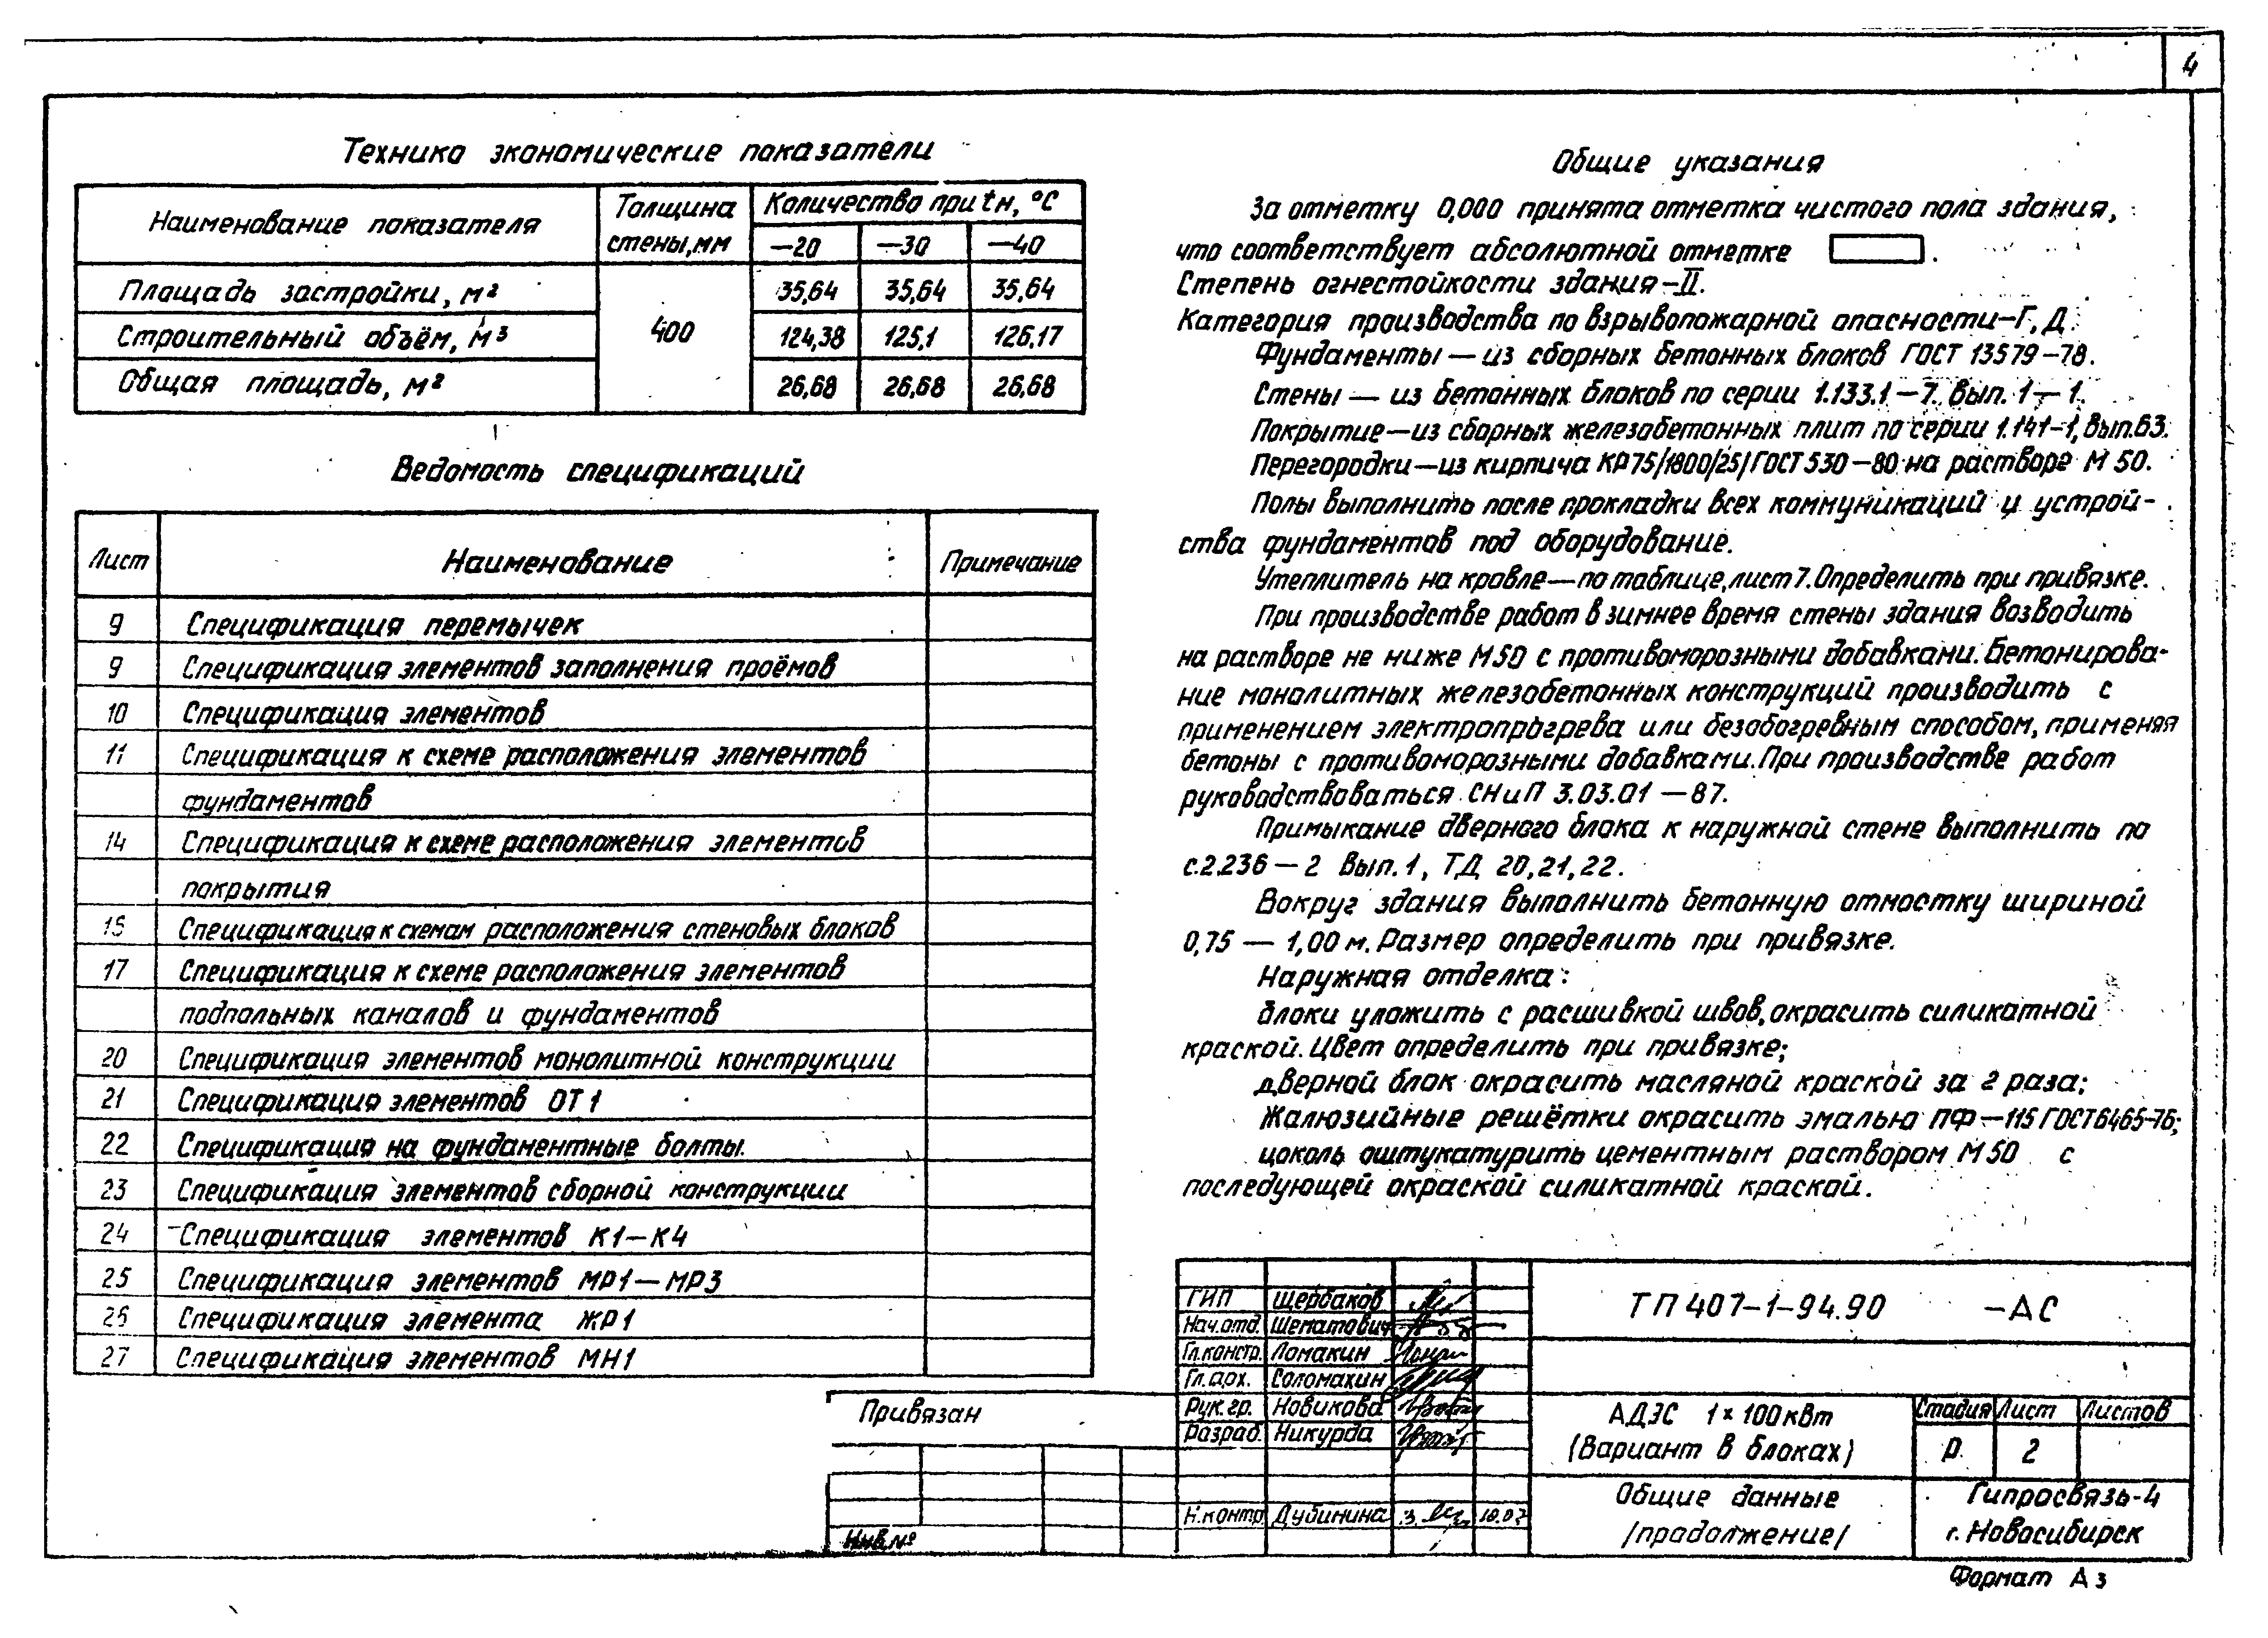 4
Технико экономические показатели
Наименование показателя
Толщина стены, мм
Количество при tн, °С
—20 —30 —40
Площадь застройки, м² 35,64 35,64 35,64
Строительный объём, м³ 400 124,38 125,1 126,17
Общая площадь, м² 26,68 26,68 26,68
Ведомость спецификаций
Лист Наименование Примечание
9 Спецификация перемычек
9 Спецификация элементов заполнения проёмов
10 Спецификация элементов
11 Спецификация к схеме расположения элементов
фундаментов
14 Спецификация к схеме расположения элементов
покрытия
Спецификация к схемам расположения стеновых блоков
17 Спецификация к схеме расположения элементов
подпольных каналов и фундаментов
20 Спецификация элементов монолитной конструкции
21 Спецификация элементов ОТ1
22 Спецификация на фундаментные болты.
23 Спецификация элементов сборной конструкции
24 Спецификация элементов К1—К4
25 Спецификация элементов МР1—МР3
26 Спецификация элемента ЖР1
27 Спецификация элементов МН1
Общие указания
За отметку 0,000 принята отметка чистого пола здания,
что соответствует абсолютной отметке .
Степень огнестойкости здания—II.
Категория производства по взрывопожарной опасности—Г, Д.
Фундаменты — из сборных бетонных блоков ГОСТ 13579—78.
Стены — из бетонных блоков по серии 1.133.1—7. Вып. 1—1.
Покрытие—из сборных железобетонных плит по серии 1.141-1, вып.63.
Перегородки—из кирпича КР75/1800/25/ГОСТ 530—80 на растворе М 50.
Полы выполнить после прокладки всех коммуникаций и устрой-
ства фундаментов под оборудование.
Утеплитель на кровле—по таблице, лист 7. Определить при привязке.
При производстве работ в зимнее время стены здания возводить
на растворе не ниже М50 с противоморозными добавками. Бетонирова-
ние монолитных железобетонных конструкций производить с
применением электропрогрева или безобогревным способом, применяя
бетоны с противоморозными добавками. При производстве работ
руководствоваться СНиП 3.03.01—87.
Примыкание дверного блока к наружной стене выполнить по
с.2.236—2 Вып. 1, ТД 20, 21, 22.
Вокруг здания выполнить бетонную отмостку шириной
0,75 — 1,00 м. Размер определить при привязке.
Наружная отделка:
блоки уложить с расшивкой швов, окрасить силикатной
краской. Цвет определить при привязке;
дверной блок окрасить масляной краской за 2 раза;
Жалюзийные решётки окрасить эмалью ПФ—115 ГОСТ 6465-76;
цоколь оштукатурить цементным раствором М50 с
последующей окраской силикатной краской.
ГИП Щербаков
Нач.отд. Шематович
Гл.констр. Ломакин
Гл.арх. Соломахин
Рук.гр. Новикова
Разраб. Никурда
Н.контр Дубинина
ТП 407-1-94.90 -АС
АДЭС 1×100кВт
(Вариант в блоках)
Стадия Лист Листов
Р 2
Общие данные
/продолжение/
Гипросвязь-4
г. Новосибирск
Привязан
Инв.№
Формат А3